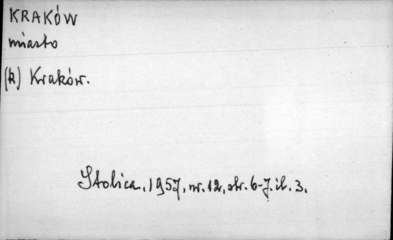 KRAKÓW
miasto
(k) Kraków.
Stolica, 1957, nr. 12, str. 6-7. il. 3.